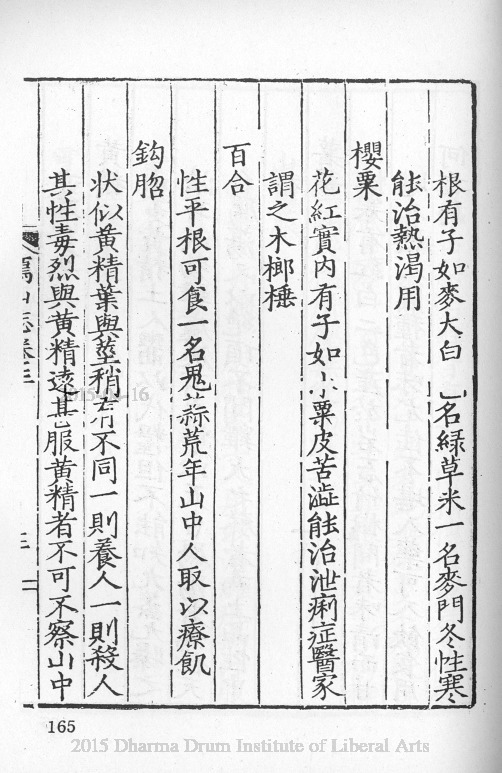 根有子如麥大白 一名綠草米一名麥門冬性寒
能治熱渴用
櫻粟
花紅實內有子如小粟皮苦澁能治泄痢症醫家
謂之木榔棰
百合
性平根可食一名鬼蒜荒年山中人取以療飢
鈎䏚
状似黃精葉與莖稍有不同一則養人一則殺人
其性毒烈與黃精遠甚服黃精者不可不察山中
165
2015 Dharma Drum Institute of Liberal Arts